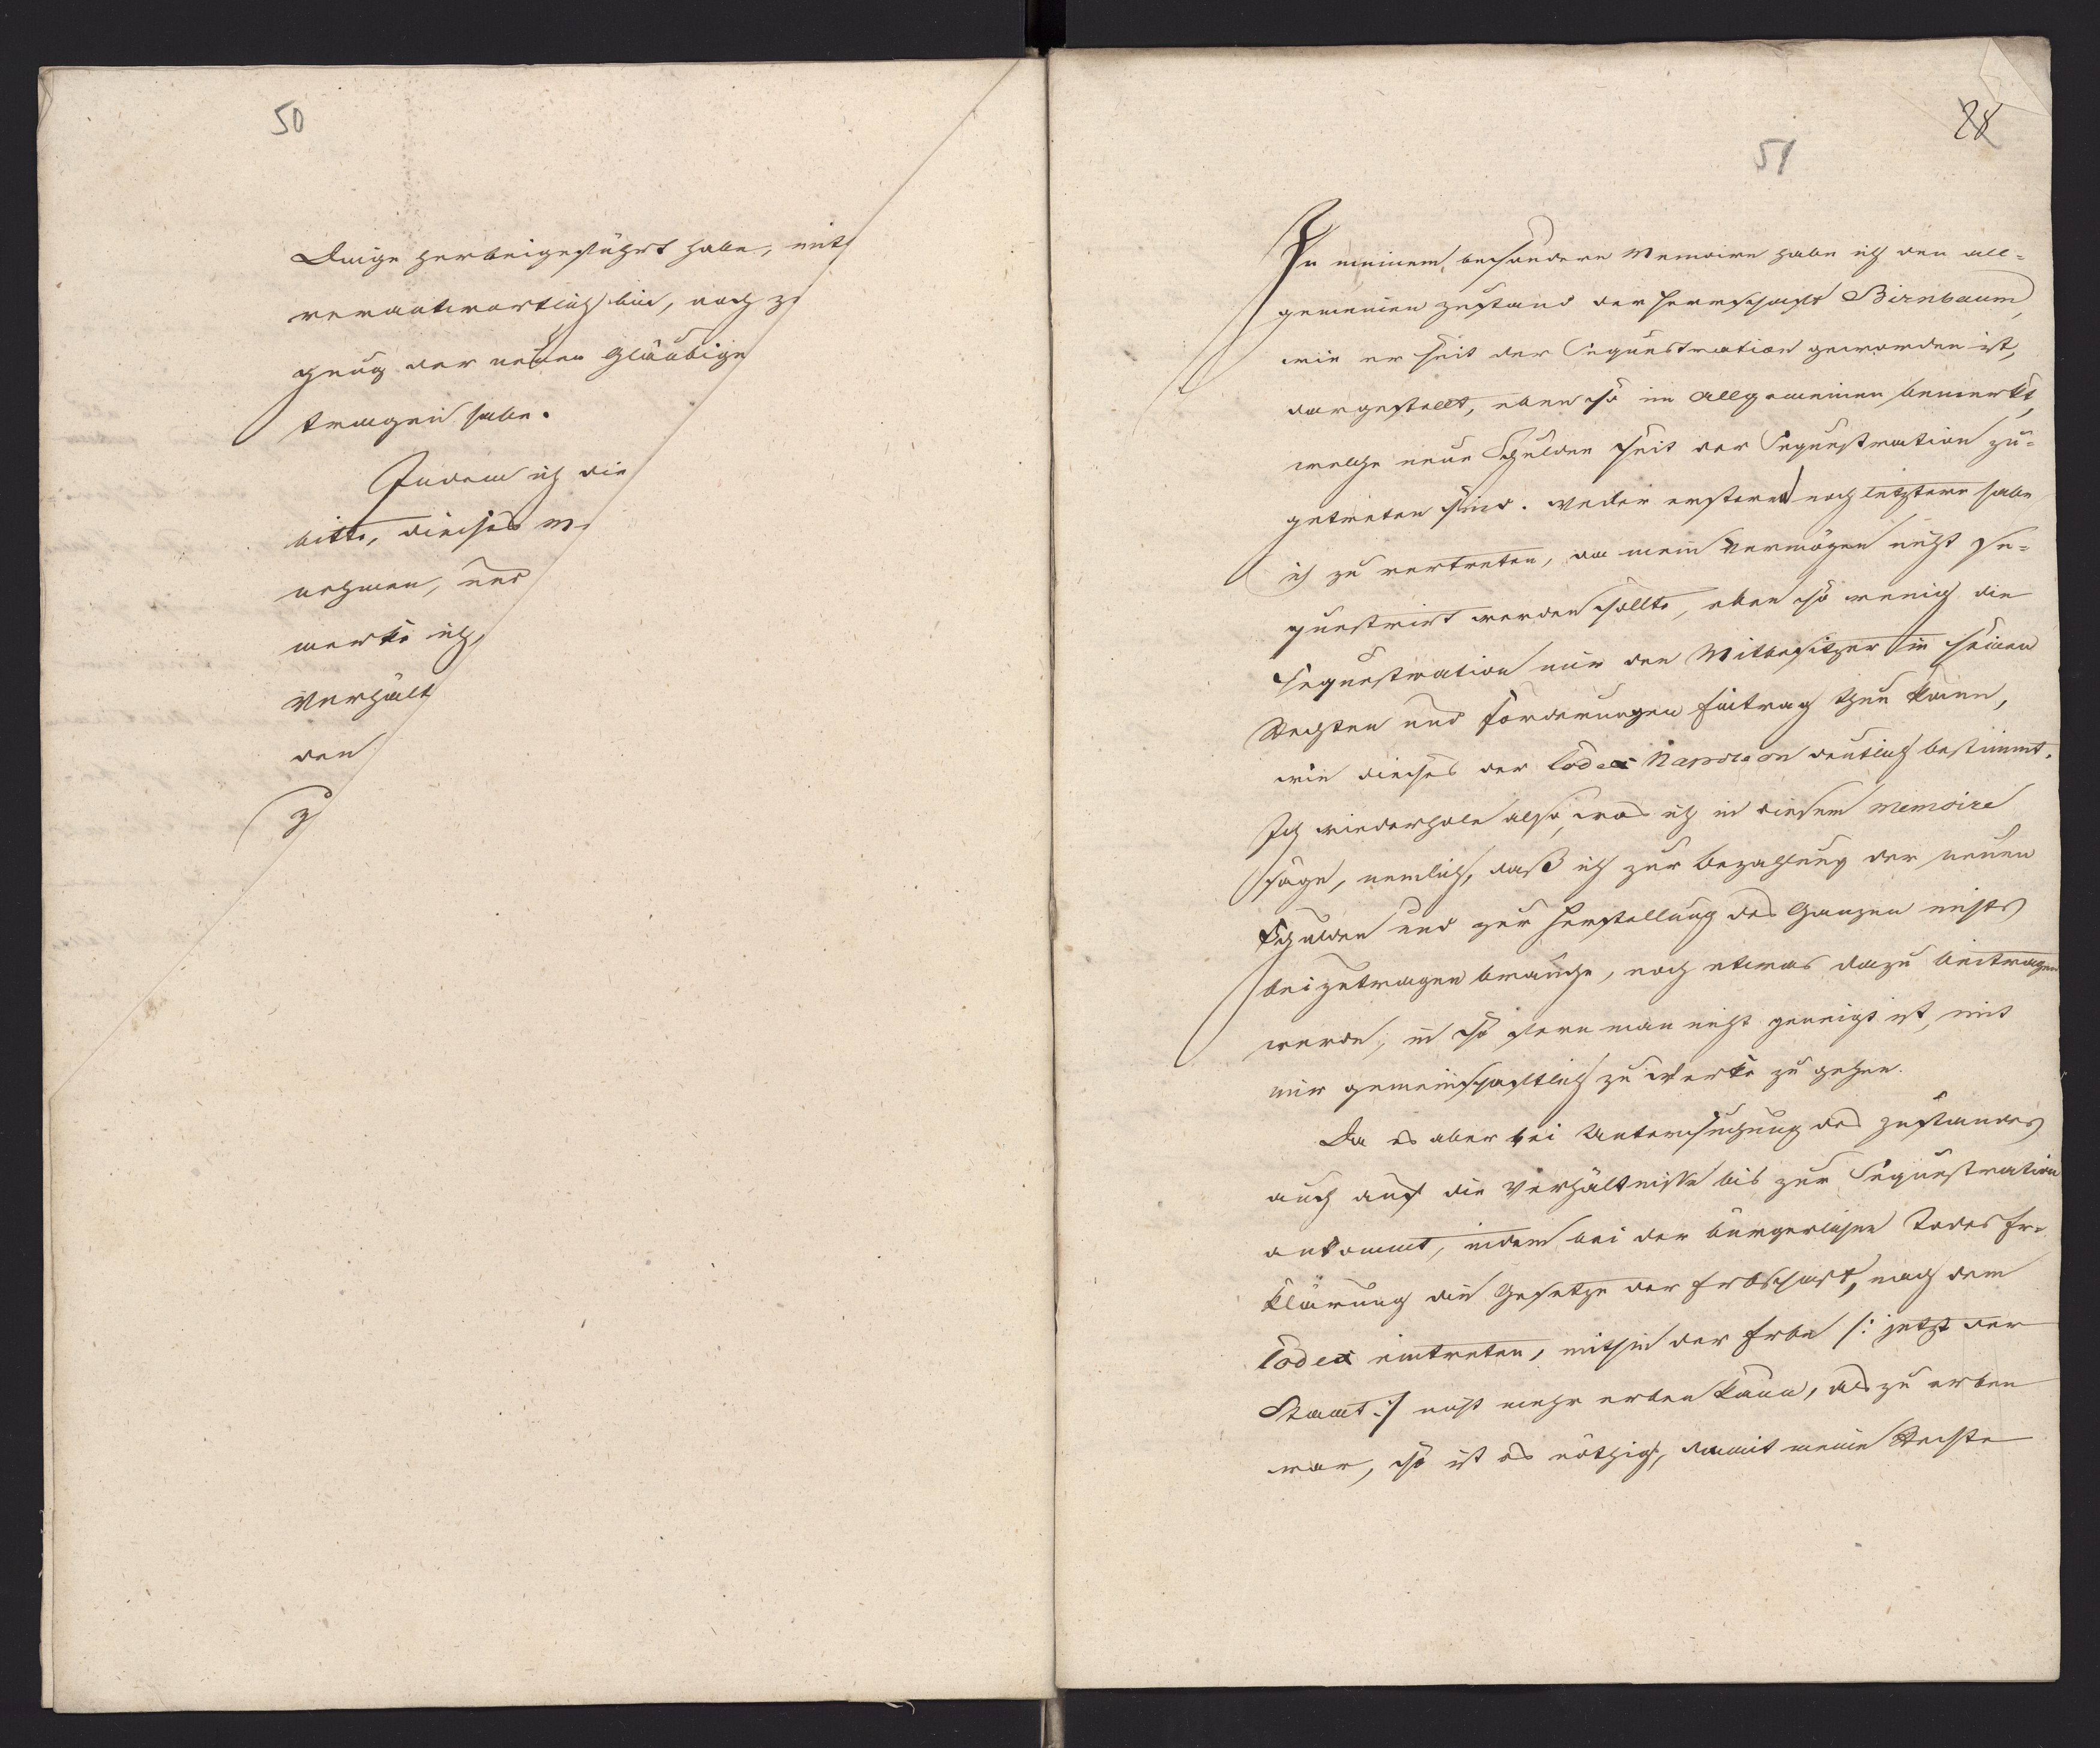 50
Dinge herbeigeführt habe, mit
verantwortlich bin, noch z
gung der neuen Gläubige
tragen habe.
Indem ich die
bitte, dieses m
nehmen, und
merke ich
Verhält
den
z
28
51
In meinem besondern Memoire habe ich den all=
gemeinen Zustand der Herrschaft Birnbaum,
wie er seit der Sequestration geworden ist,
dargestellt, eben so im Allgemeinen bemerkt,
welche neue Schulden seit der Sequestration zu=
getreten sind. Weder erstern noch letztere habe
ich zu vertreten, da mein Vermögen nicht se=
questrirt werden sollte, eben so wenig die
Sequestration nun den Mitbesitzer in seinen
Rechten und Forderungen Eintrag thun kann,
wie dieses der Codex Napoleon deutlich bestimmt.
Ich wiederhole also, was ich in diesem Memoire
sage, nemlich, daß ich zur Bezahlung der neuen
Schulden und zur Herstellung des Ganzen nichts
beizutragen brauche, noch etwas dazu beitragen
werde, in so fern man nicht geneigt ist, mit
mir gemeinschaftlich zu Werke zu gehen.
Da es aber bei Untersuchung des Zustandes
auch auf die Verhältnisse bis zur Sequestration
ankommt, indem bei der bürgerlichen Todes Er=
klärung die Gesetze der Erbschaft, nach dem
Codex eintreten, mithin der Erbe /: jetzt der
Staat :/ nicht mehr erben kann, als zu erben
war, so ist es nöthig, damit meine Rechte